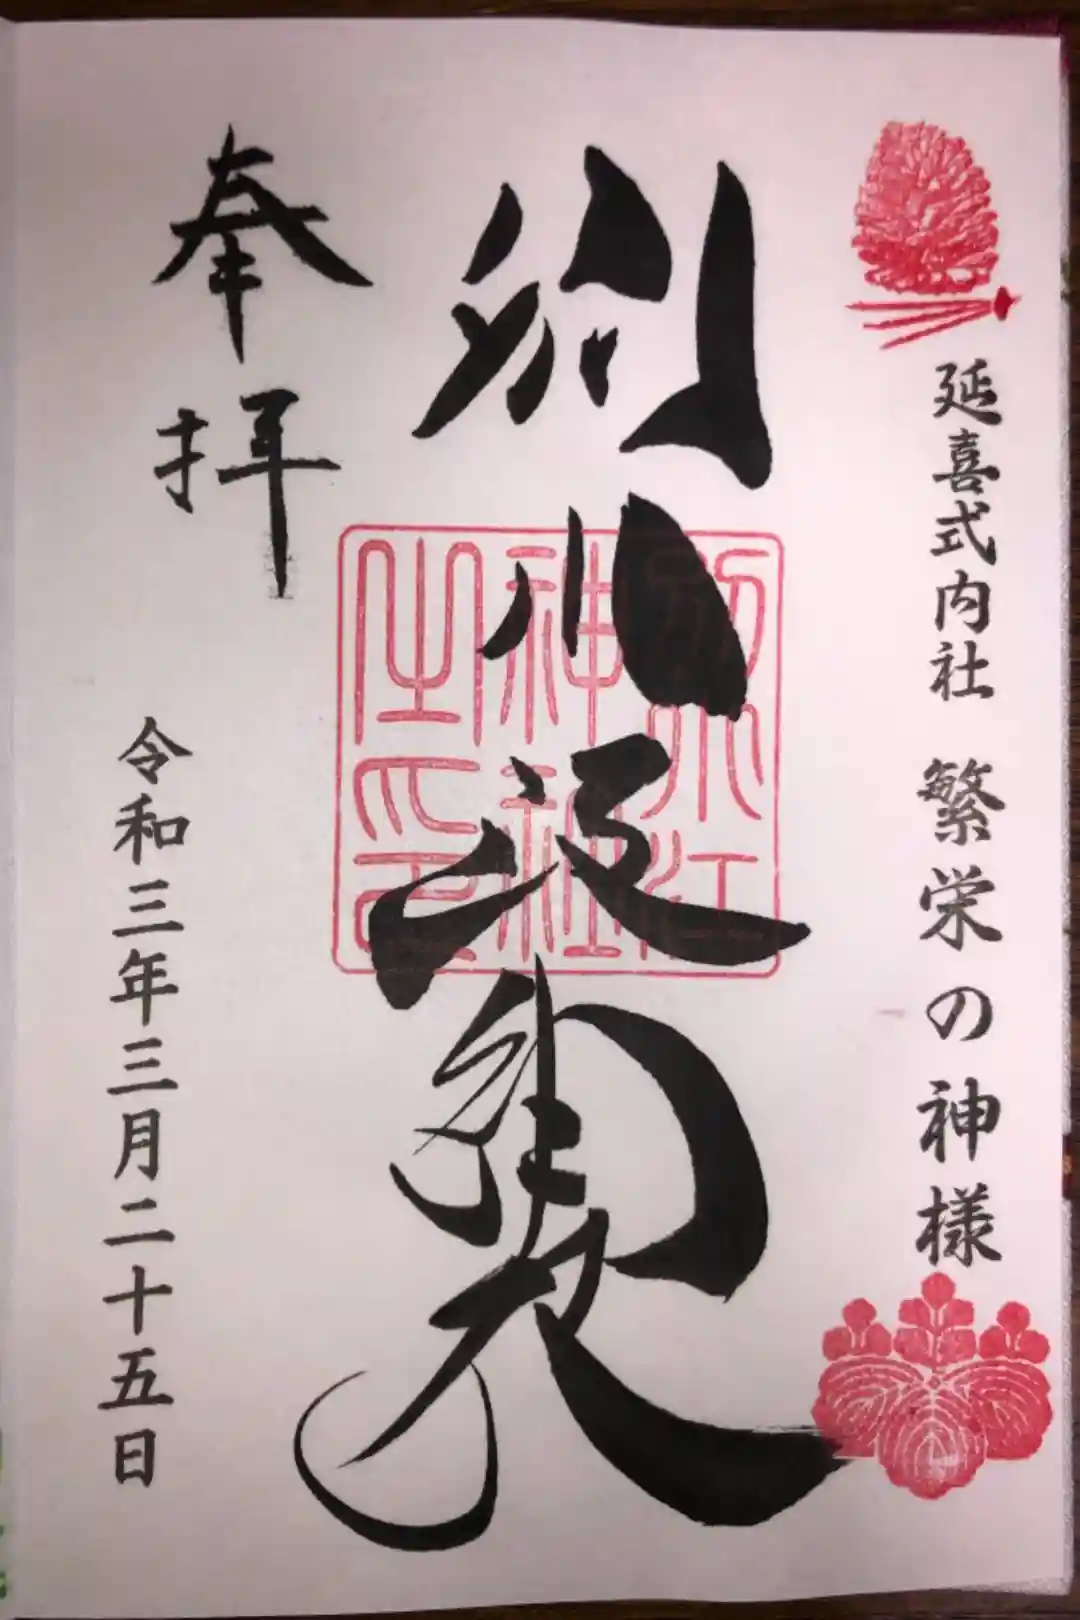 延喜式内社 繁栄の神様
別小江神社
別小江
神社
之印
奉拝
令和三年三月二十五日